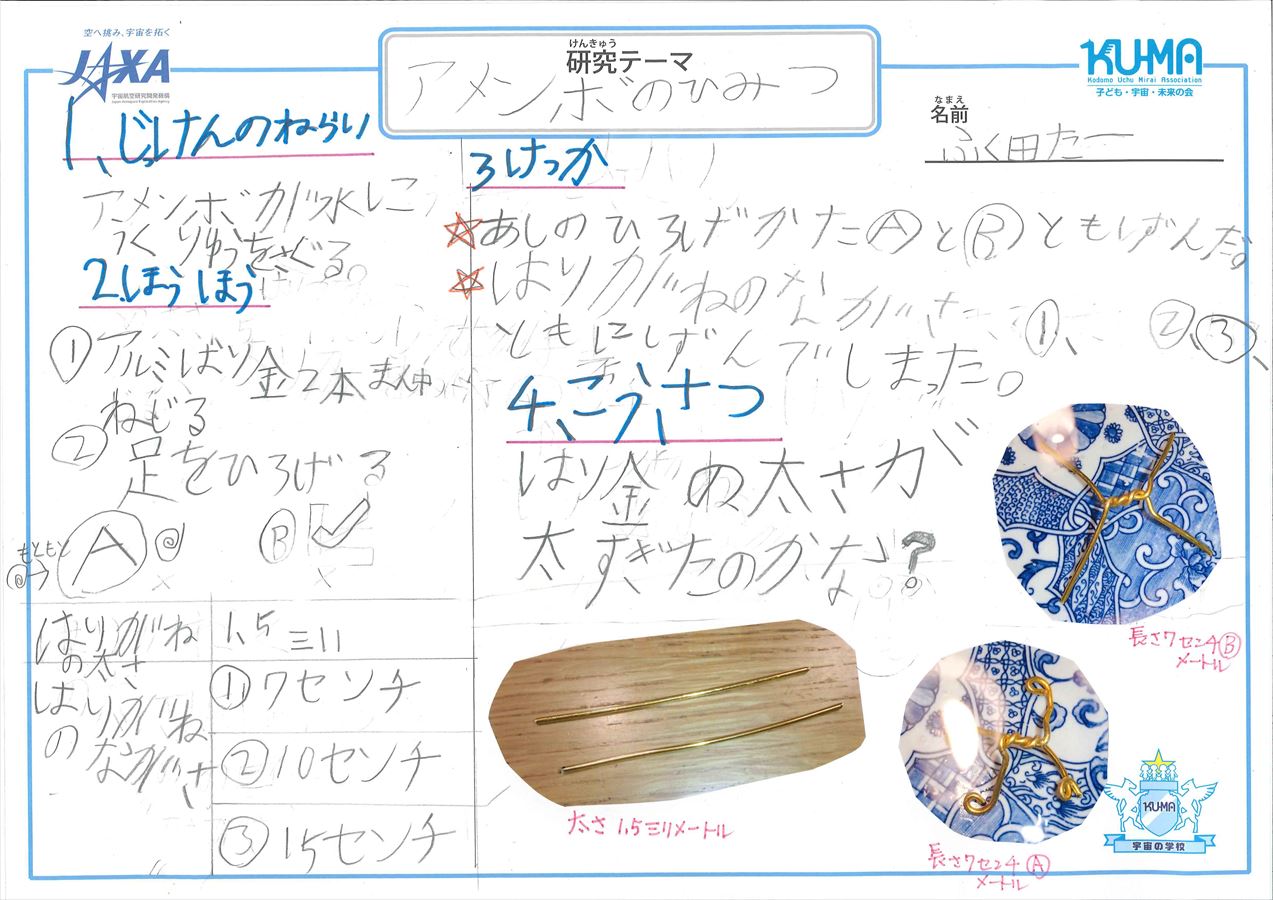 空へ挑み、宇宙を拓く
JAXA
宇宙航空研究開発機構
Japan Aerospace Exploration Agency
けんきゅう
研究テーマ
アメンボのひみつ
KU-MA
Kodomo Uchu Mirai Association
子ども・宇宙・未来の会
なまえ
名前
ふく田たー
1、じっけんのねらい
アメンボが水しこ
うく りゆうをさぐる。
2.ほうほう
① アルミばり金2本まん中
ねじる
② 足をひろげる
もともと
A
B
はりがね
の太さ
1.5ミリ
はりがね
のながさ
①7センチ
②10センチ
③15センチ
3けっか
☆あしのひろげかたⒶとⒷともしずんだ。
☆はりがねのながさ、①、②、③、
ともにしずんでしまった。
4、こうさつ
はり金の太さが
太すぎたのかな?
長さ7センチⒷ
メートル
太さ1.5ミリメートル
長さ7センチⒶ
メートル
KUMA
宇宙の学校